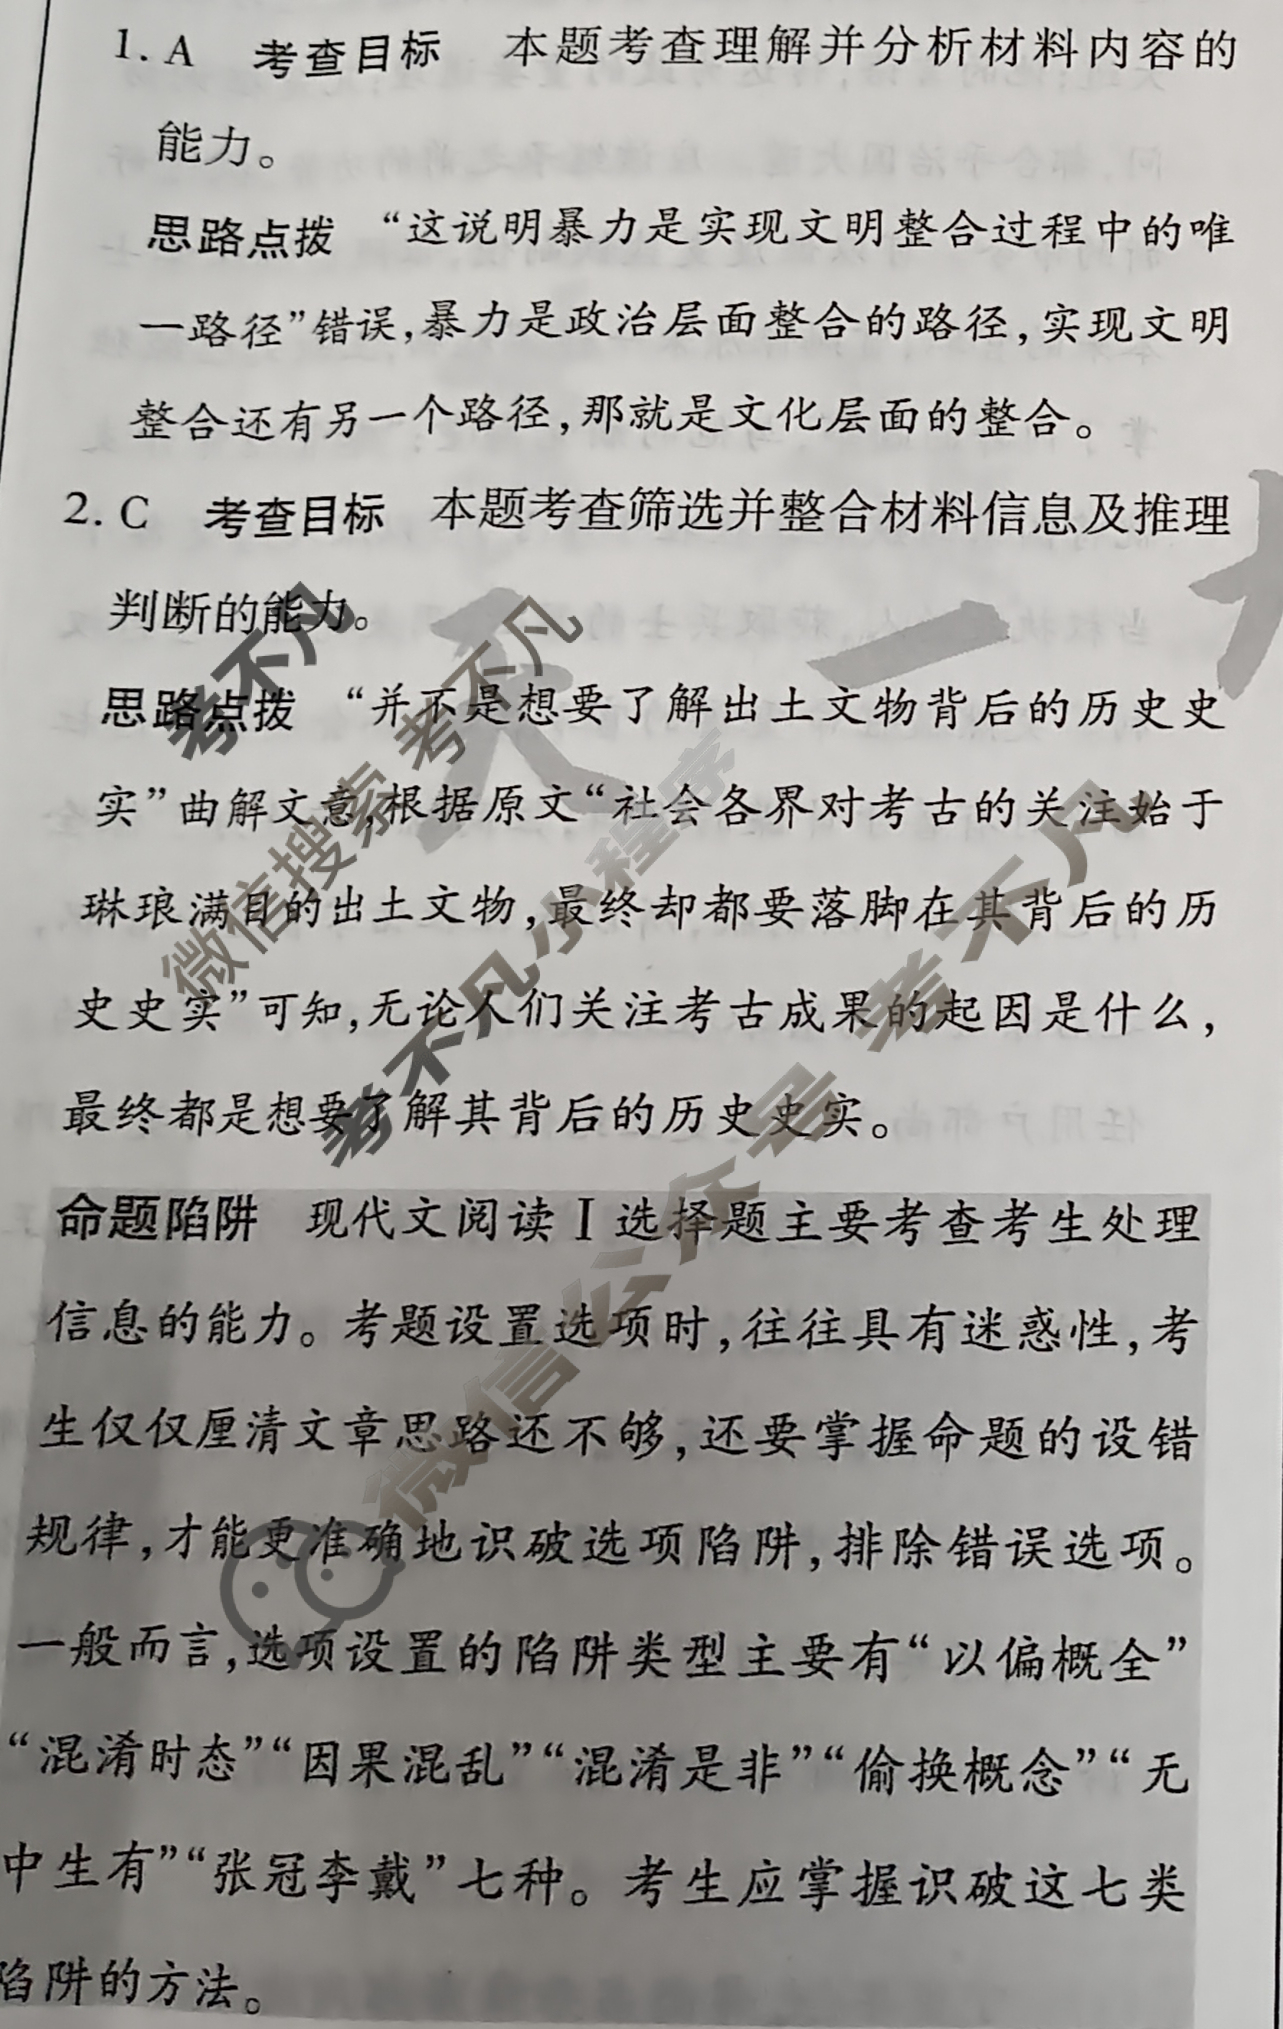 1. A 考查目标 本题考查理解并分析材料内容的
能力。
思路点拨 “这说明暴力是实现文明整合过程中的唯
一路径”错误,暴力是政治层面整合的路径,实现文明
整合还有另一个路径,那就是文化层面的整合。
2. C 考查目标 本题考查筛选并整合材料信息及推理
判断的能力。
思路点拨 “并不是想要了解出土文物背后的历史史
实”曲解文意,根据原文“社会各界对考古的关注始于
琳琅满目的出土文物,最终却都要落脚在其背后的历
史史实”可知,无论人们关注考古成果的起因是什么,
最终都是想要了解其背后的历史史实。
命题陷阱 现代文阅读Ⅰ选择题主要考查考生处理
信息的能力。考题设置选项时,往往具有迷惑性,考
生仅仅厘清文章思路还不够,还要掌握命题的设错
规律,才能更准确地识破选项陷阱,排除错误选项。
一般而言,选项设置的陷阱类型主要有“以偏概全”
“混淆时态”“因果混乱”“混淆是非”“偷换概念”“无
中生有”“张冠李戴”七种。考生应掌握识破这七类
陷阱的方法。
考不凡
微信搜索 考不凡
考不凡小程序
微信公众号 考不凡
天一